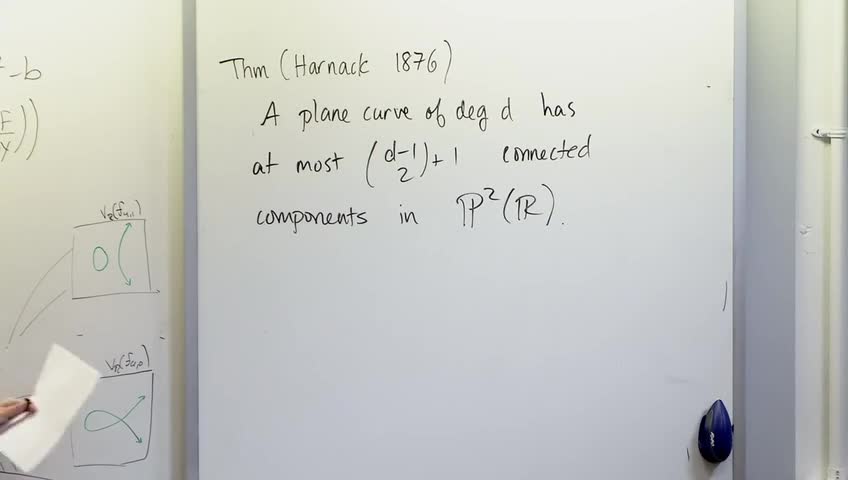 -b
F
Y ))
V_R(f_{4,1})
V_R(f_{4,0})
Thm (Harnack 1876)
A plane curve of deg d has
at most (d-1 2) + 1 connected
components in ℙ²(ℝ).